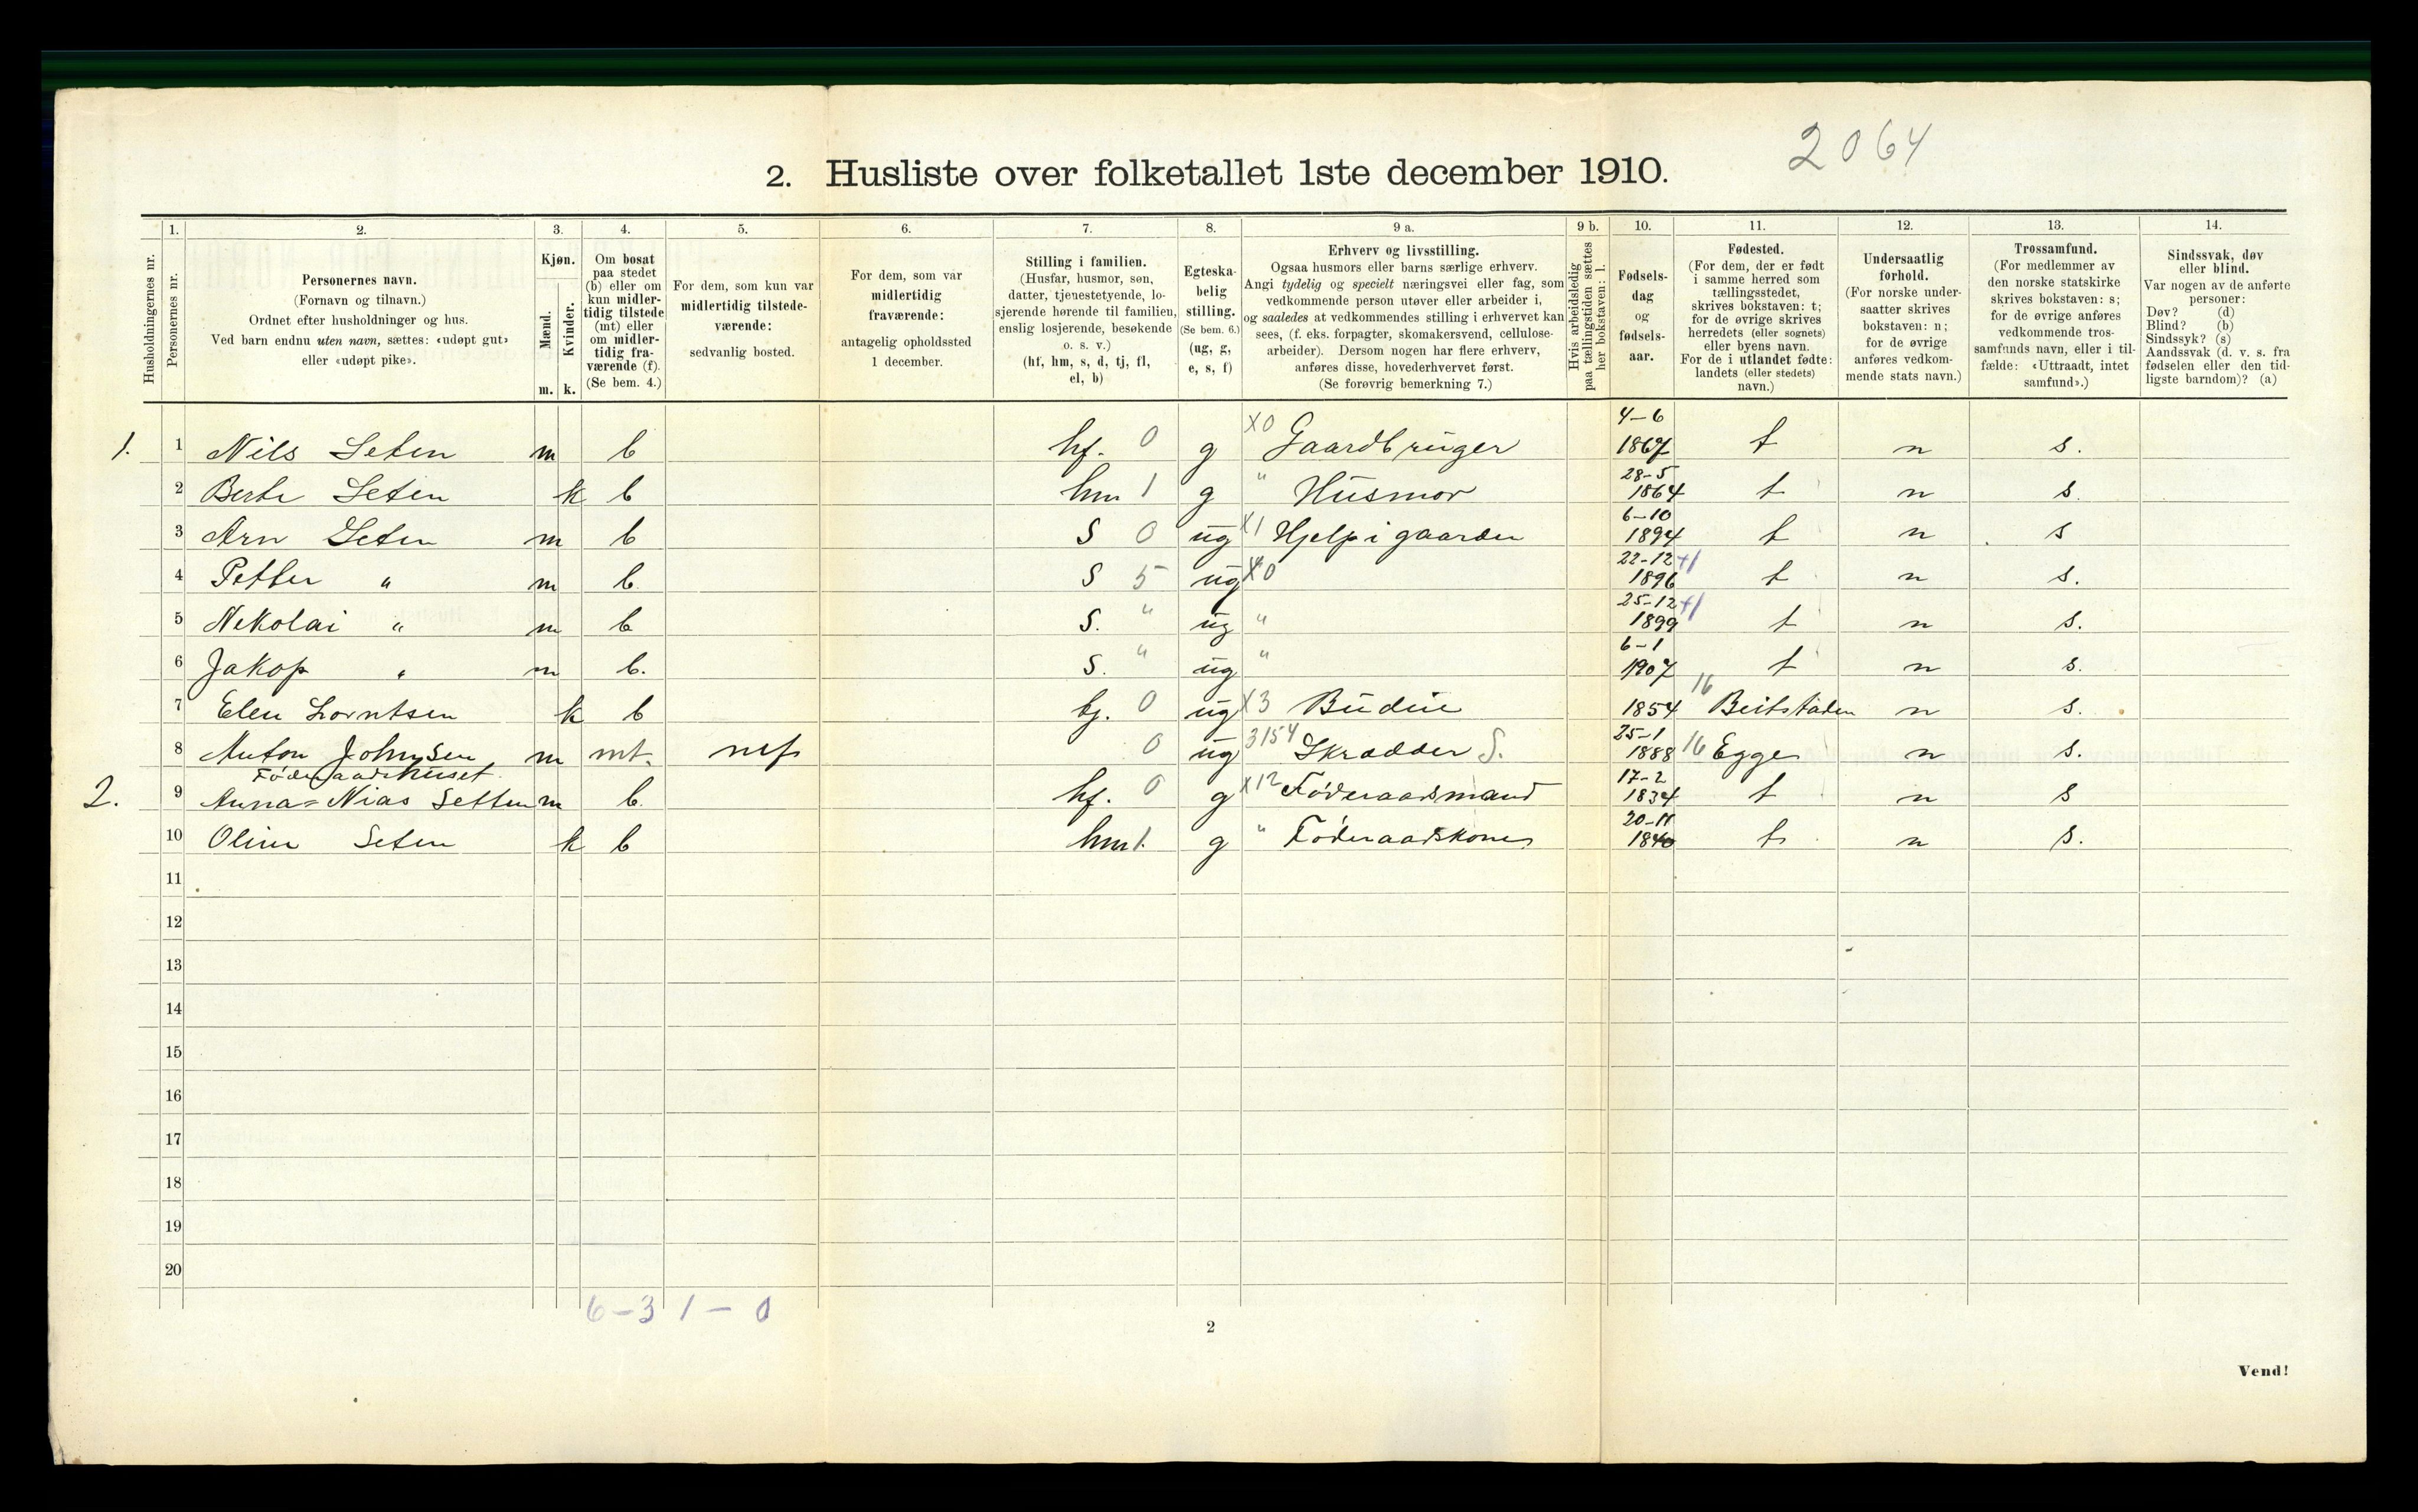 2064
2. Husliste over folketallet 1ste december 1910.
Husholdningernes nr.
1. Personernes nr.
2. Personernes navn.
(Fornavn og tilnavn.)
Ordnet efter husholdninger og hus.
Ved barn endnu uten navn, sættes: «udøpt gut»
eller «udøpt pike».
3. Kjøn.
Mænd. m.
Kvinder. k.
4. Om bosat
paa stedet
(b) eller om
kun midler-
tidig tilstede
(mt) eller
om midler-
tidig fra-
værende (f).
(Se bem. 4.)
5. For dem, som kun var
midlertidig tilstede-
værende:
sedvanlig bosted.
6. For dem, som var
midlertidig
fraværende:
antagelig opholdssted
1 december.
7. Stilling i familien.
(Husfar, husmor, søn,
datter, tjenestetyende, lo-
sjerende hørende til familien,
enslig losjerende, besøkende
o. s. v.)
(hf, hm, s, d, tj, fl,
el, b)
8. Egteska-
belig
stilling.
(Se bem. 6.)
(ug, g,
e, s, f)
9 a. Erhverv og livsstilling.
Ogsaa husmors eller barns særlige erhverv.
Angi tydelig og specielt næringsvei eller fag, som
vedkommende person utøver eller arbeider i,
og saaledes at vedkommendes stilling i erhvervet kan
sees, (f. eks. forpagter, skomakersvend, cellulose-
arbeider). Dersom nogen har flere erhverv,
anføres disse, hovederhvervet først.
(Se forøvrig bemerkning 7.)
9 b. Hvis arbeidsledig
paa tællingstiden sættes
her bokstaven: l.
10. Fødsels-
dag
og
fødsels-
aar.
11. Fødested.
(For dem, der er født
i samme herred som
tællingsstedet,
skrives bokstaven: t;
for de øvrige skrives
herredets (eller sognets)
eller byens navn.
For de i utlandet fødte:
landets (eller stedets)
navn.)
12. Undersaatlig
forhold.
(For norske under-
saatter skrives
bokstaven: n;
for de øvrige
anføres vedkom-
mende stats navn.)
13. Trossamfund.
(For medlemmer av
den norske statskirke
skrives bokstaven: s;
for de øvrige anføres
vedkommende tros-
samfunds navn, eller i til-
fælde: «Uttraadt, intet
samfund».)
14. Sindssvak, døv
eller blind.
Var nogen av de anførte
personer:
Døv? (d)
Blind? (b)
Sindssyk? (s)
Aandssvak (d. v. s. fra
fødselen eller den tid-
ligste barndom)? (a)
1. 1 Nils Seten m b hf. 0 g X0 Gaardbruger 4-6 1867 t n s.
2 Berte Seten k b hm 1 g " Husmor 28-5 1864 t n s.
3 Arn Seten m b S 0 ug X1 Hjelp i gaarden 6-10 1894 t n s
4 Petter " m b. S 5 ug X0 22-12 1896 +1 t n s.
5 Nekolai " m b S. " ug " 25-12 1899 +1 t n s.
6 Jakop " m b. S. " ug " 6-1 1907 t n s.
7 Elen Lorntsen k b tj. 0 ug X3 Budeie 1854 16 Beitstaden n s.
8 Anton Johnsen m mt. 0 ug 3154 Skrædder S. 25-1 1888 16 Egge n s.
Føderaadshuset
2. 9 Anna=Nias Setten m b. hf. 0 g X12 Føderaadsmand 17-2 1834 t n s
10 Oline Seten k b hm 1. g " Føderaadskone 20-11 1840 t n s.
11
12
13
14
15
16
17
18
19
20
6-3 1-0
2
Vend!